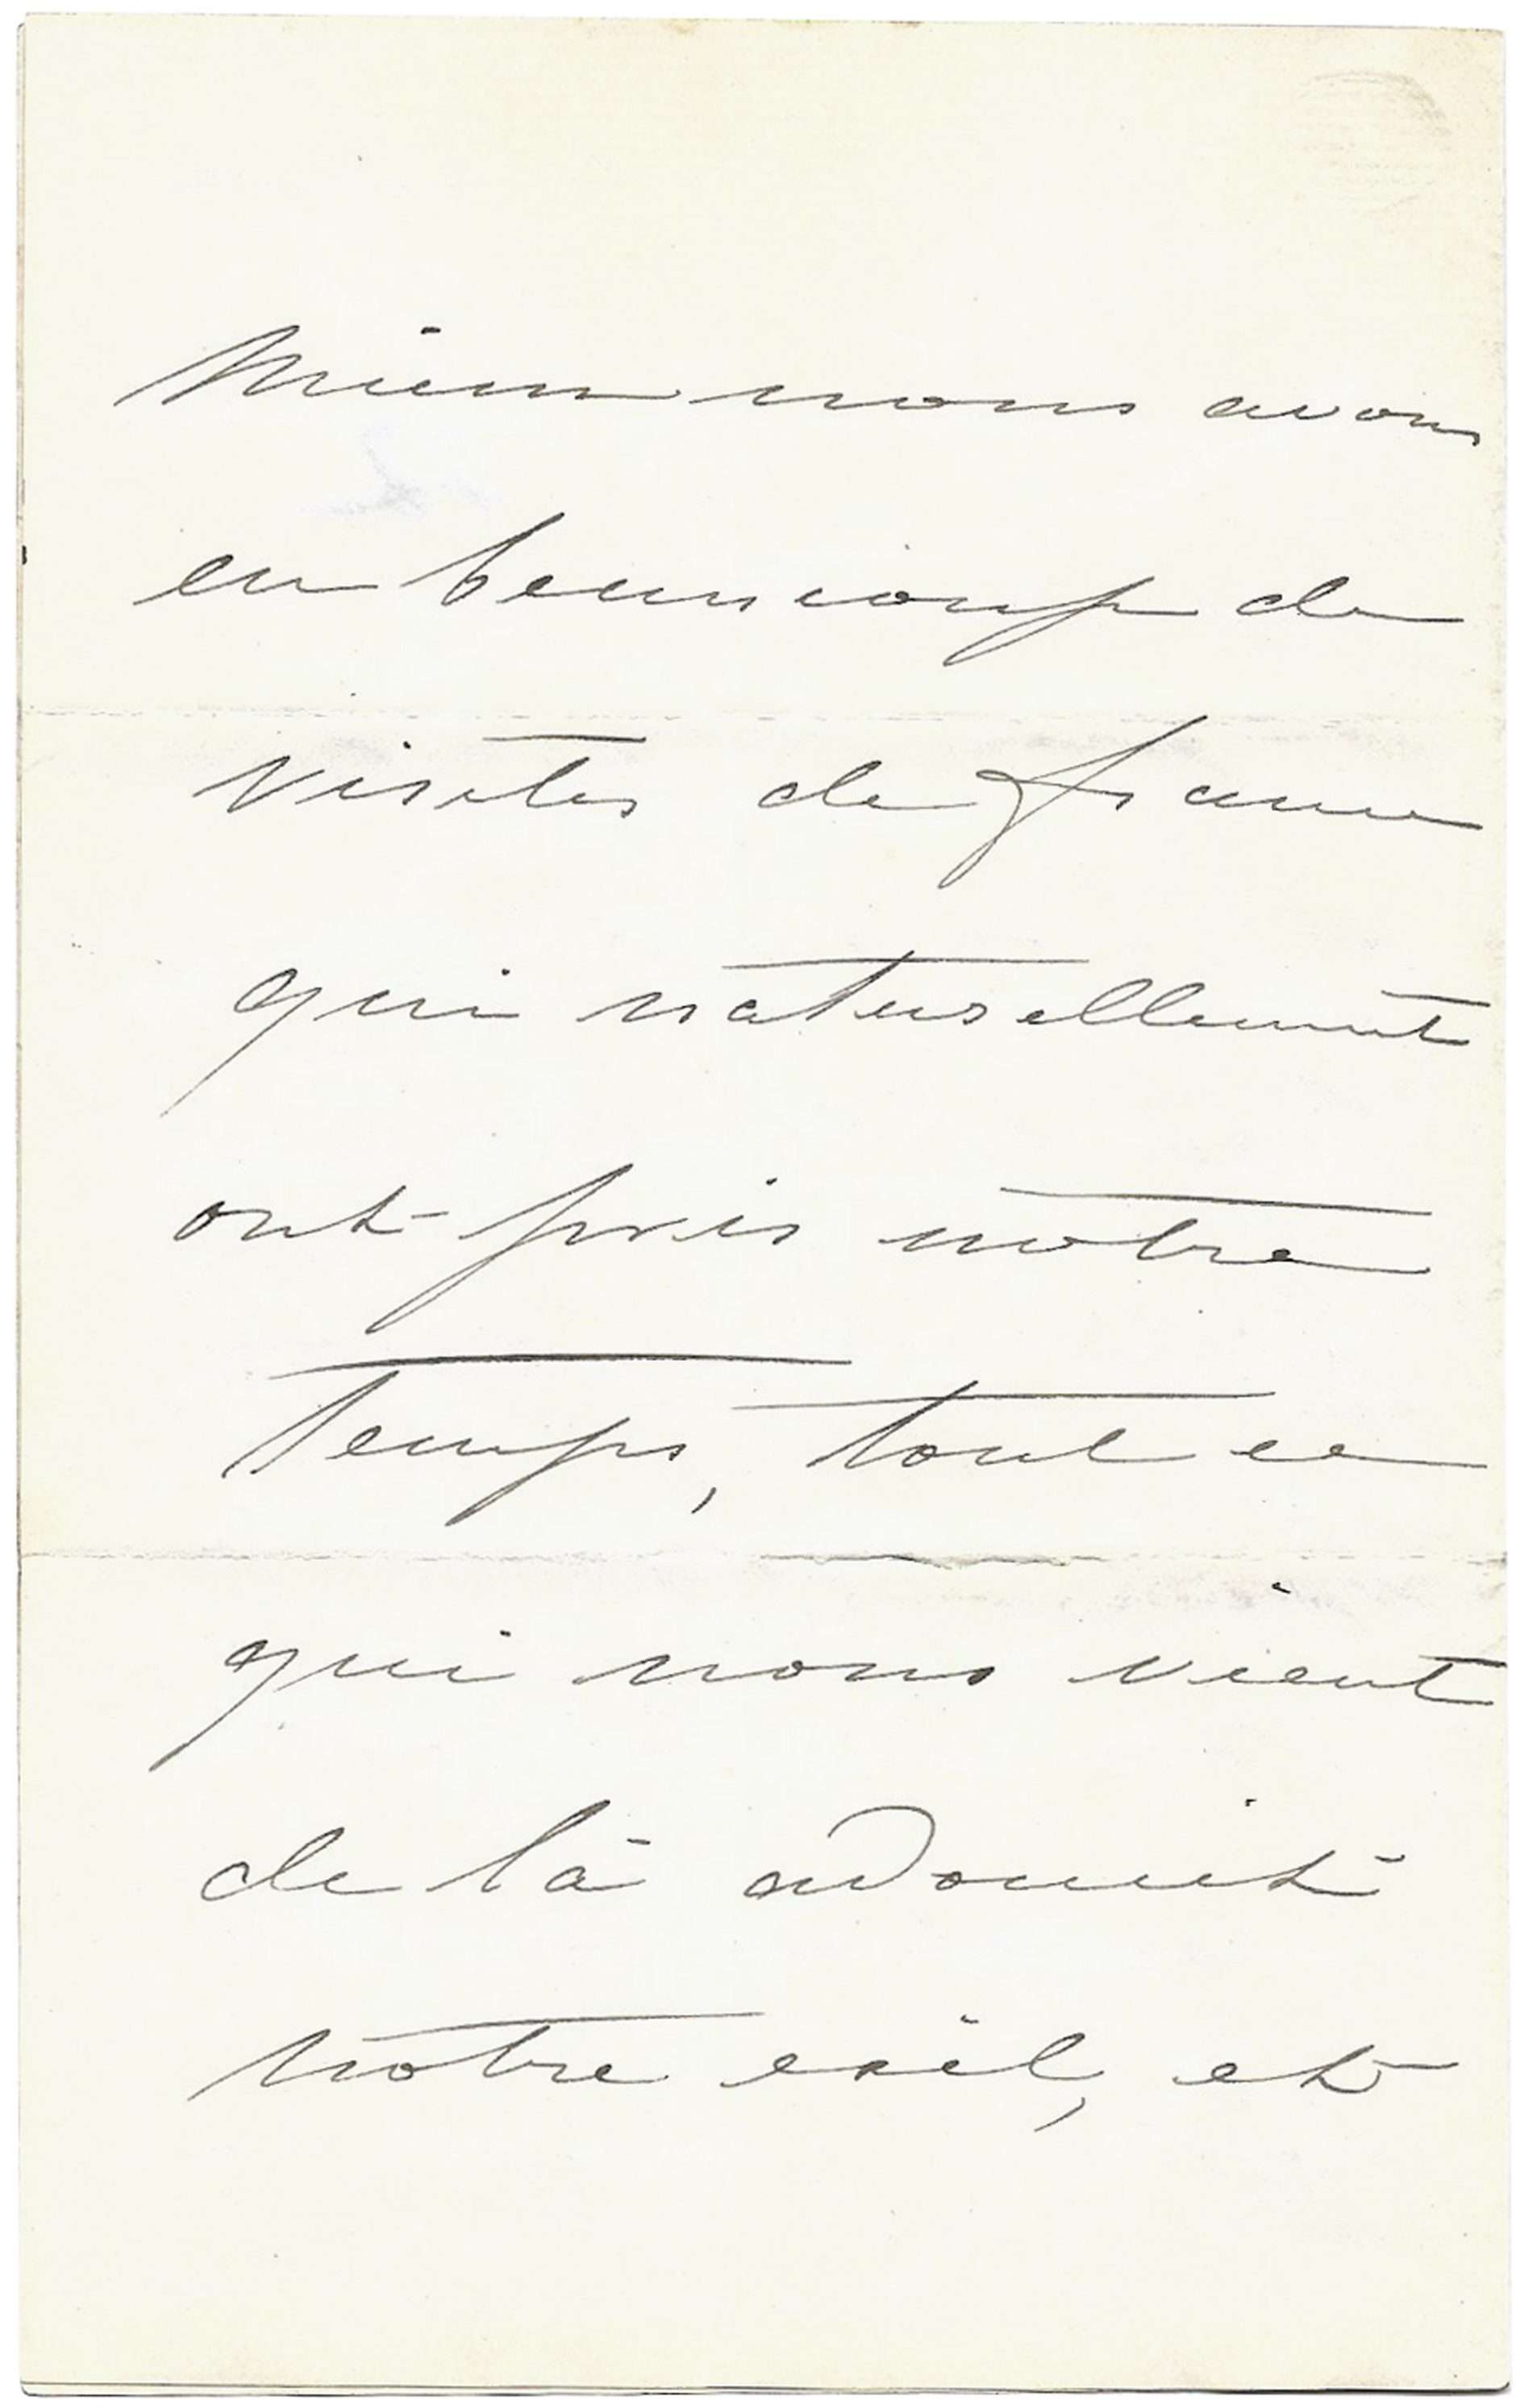 mieux nous avons
eu beaucoup de
visites de france
qui naturellement
ont pris notre
temps, tout ce
qui nous vient
de là adoucit
notre exil, et